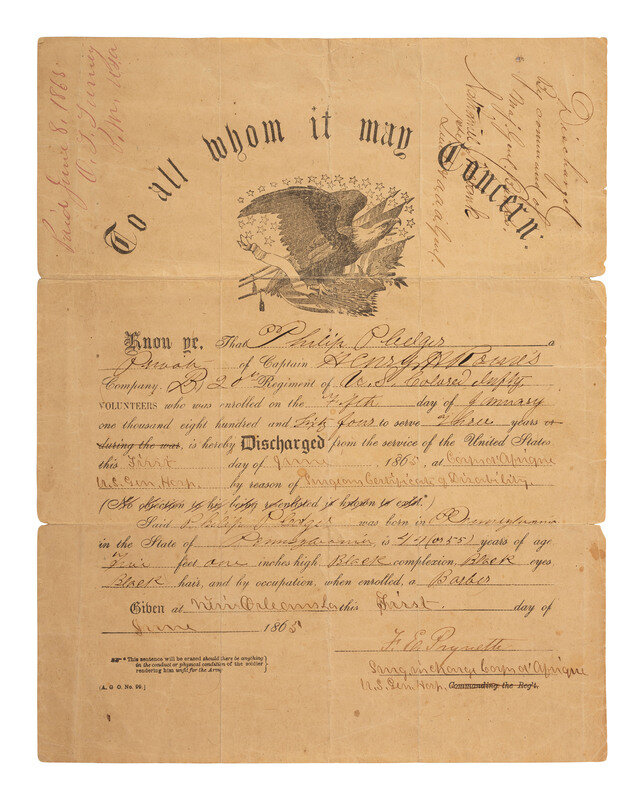 Paid June 8, 1865
To all whom it may Concern:
Discharged
By command of
Maj Genl
Know ye, That Philip Pledger a
Private of Captain Henry
Company. B, 20th Regiment of U.S. Colored Infty
VOLUNTEERS who was enrolled on the Fifth day of January
one thousand eight hundred and Sixty four to serve Three years or
during the war, is hereby Discharged from the service of the United States
this First day of June, 1865, at Corps d'Afrique
U.S. Gen. Hosp. by reason of Surgeons Certificate of Disability.
(No objection to his being reenlisted is known to exist.*)
Said Philip Pledger was born in
in the State of Pennsylvania is 44 (or 55) years of age
feet one inches high Black complexion, Black eyes
Black hair, and by occupation, when enrolled, a Barber
Given at New Orleans La this First day of
June 1865
F. E.
* This sentence will be erased should there be anything
in the conduct or physical condition of the soldier
rendering him unfit for the Army.
Surg. in charge Corps d'Afrique
(A. G. O. No. 99.)
U.S. Gen. Hosp. Commanding the Reg't.